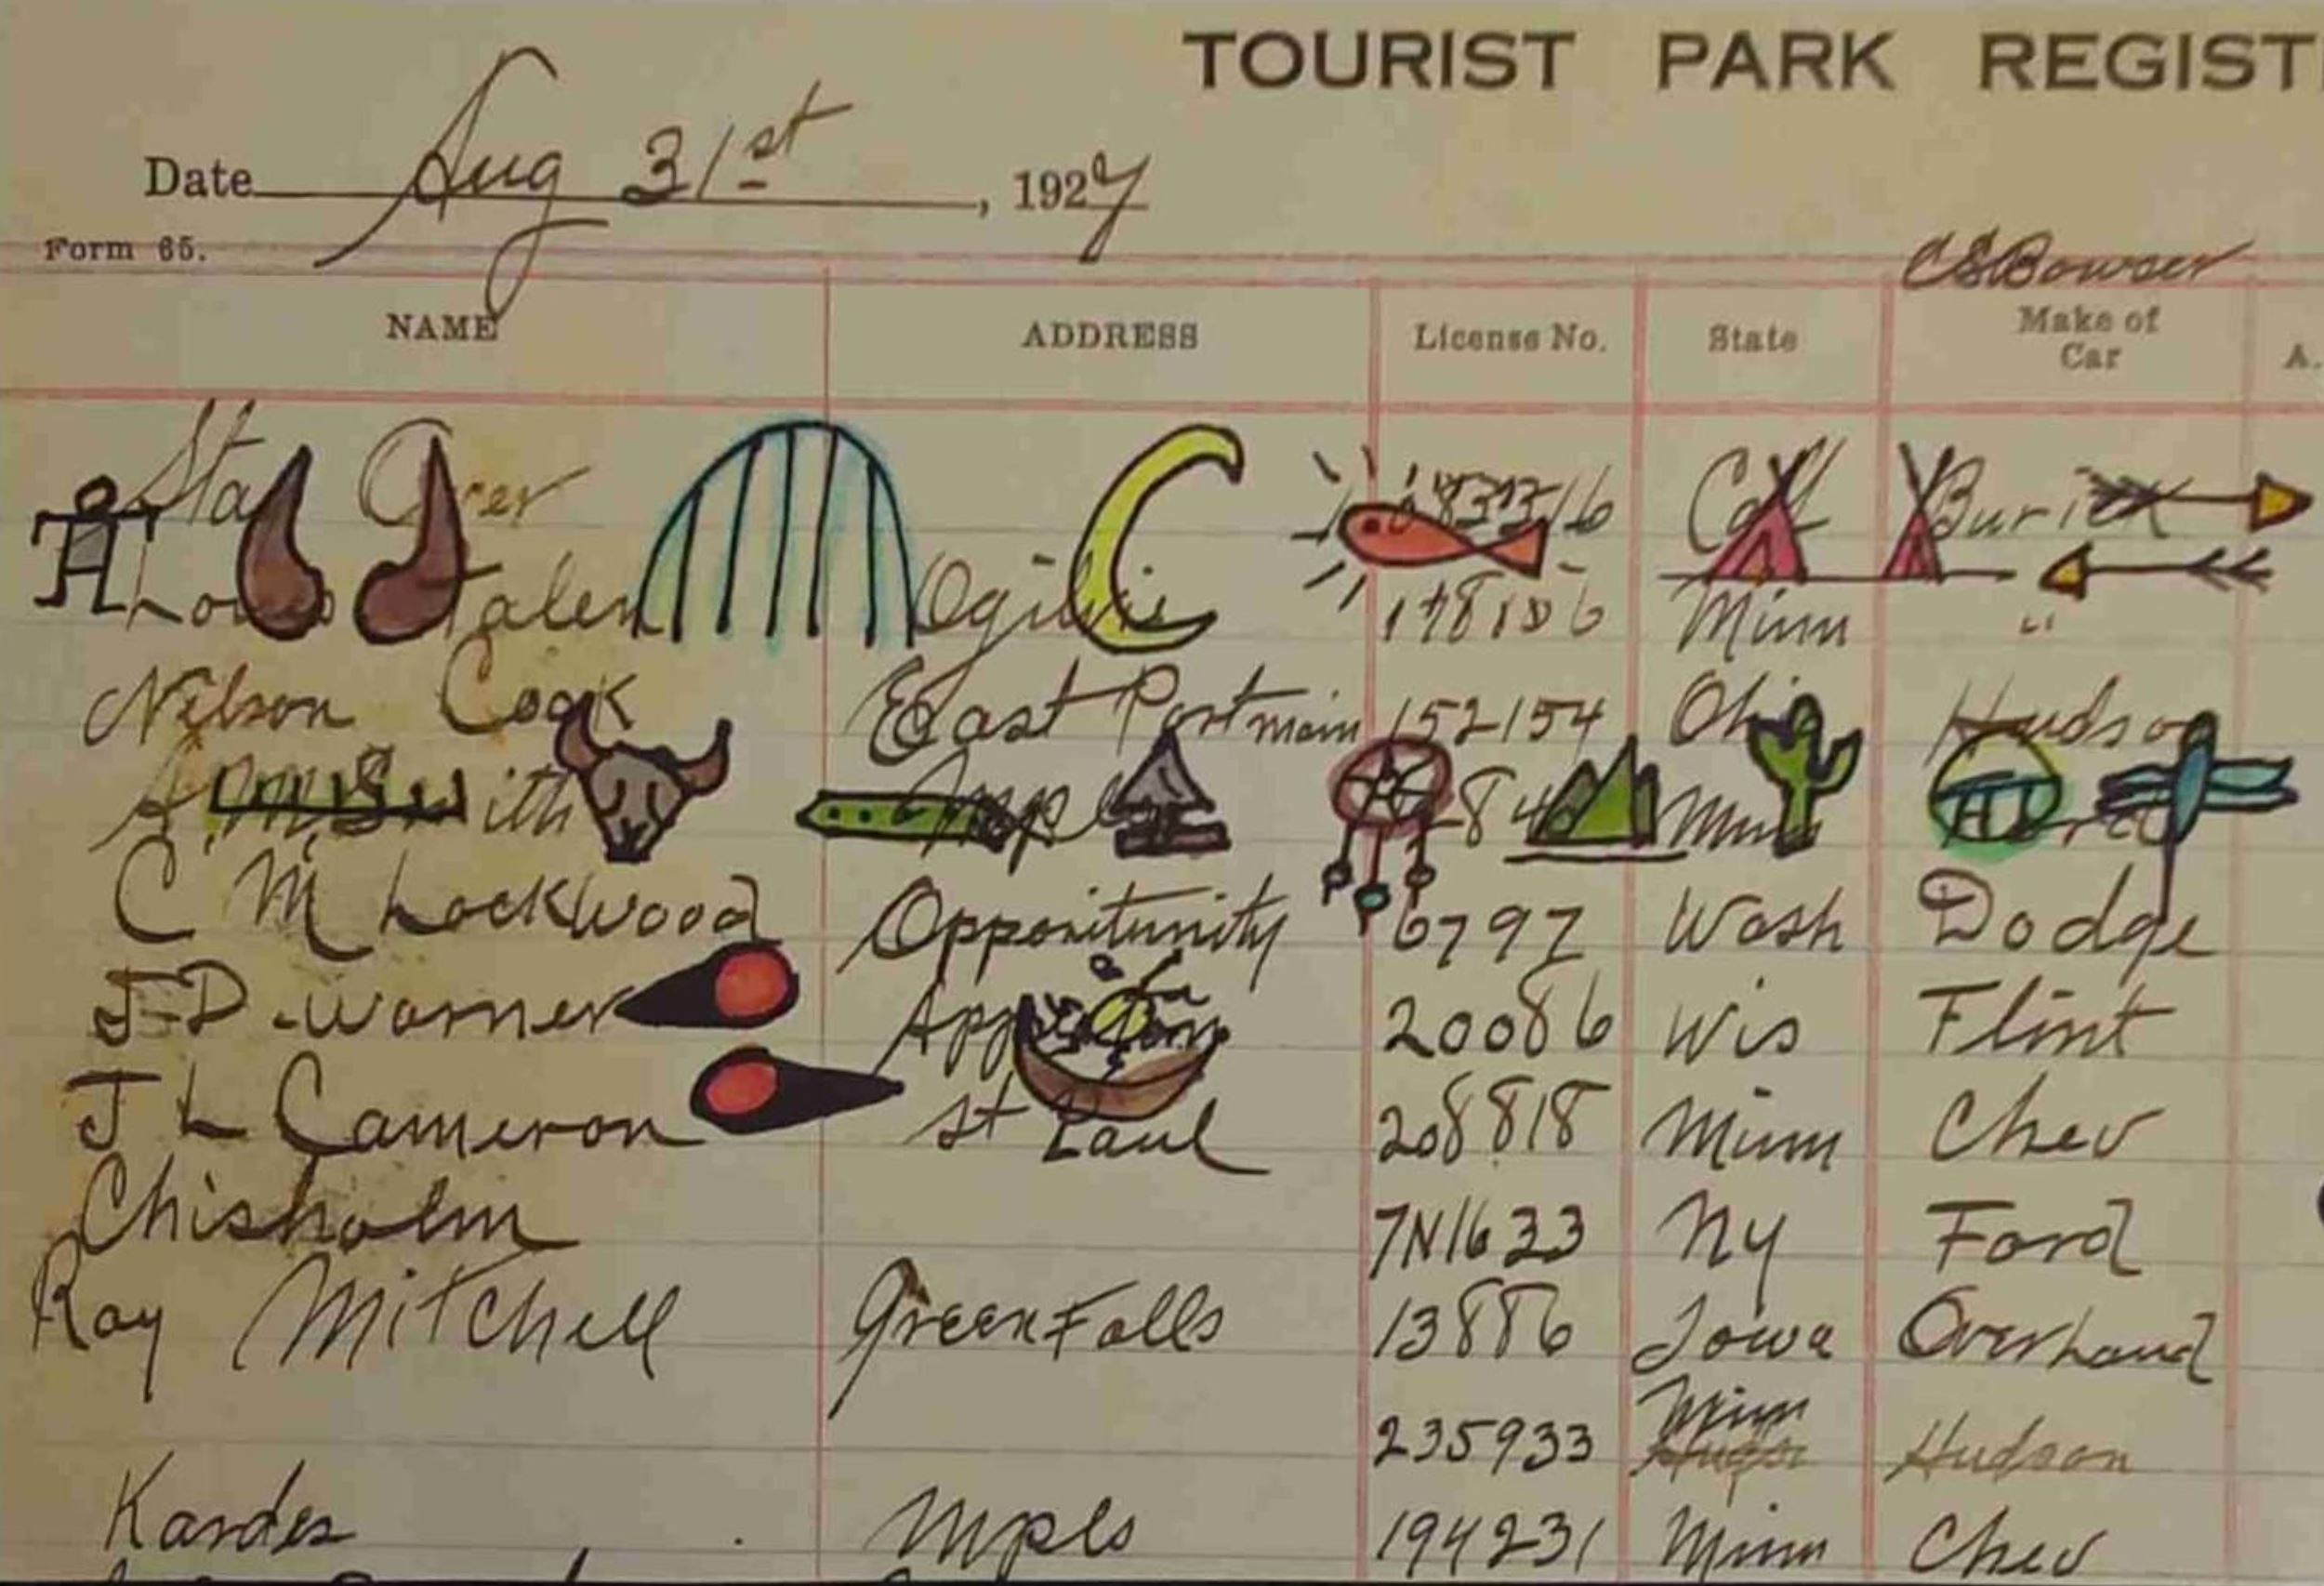 TOURIST PARK REGIST
Date Aug 31st, 1927
Form 65.
C S Bowser
NAME ADDRESS License No. State Make of Car A.
Cal
Ogilvie 178186 Minn "
Nelson Cook East Port main 152154 Ohio Hudson
A. M. Smith Mpls 84 Minn
C M Lockwood Opporitunity 6797 Wash Dodge
J-D. Warner Appleton 20086 Wis Flint
J L Cameron St Paul 208818 Minn Chev
Chisholm 7N1633 Ny Ford
Ray Mitchell Green Falls 13886 Iowa Overland
235933 Minn Hudson
Kardes Mpls 194231 Minn Chev